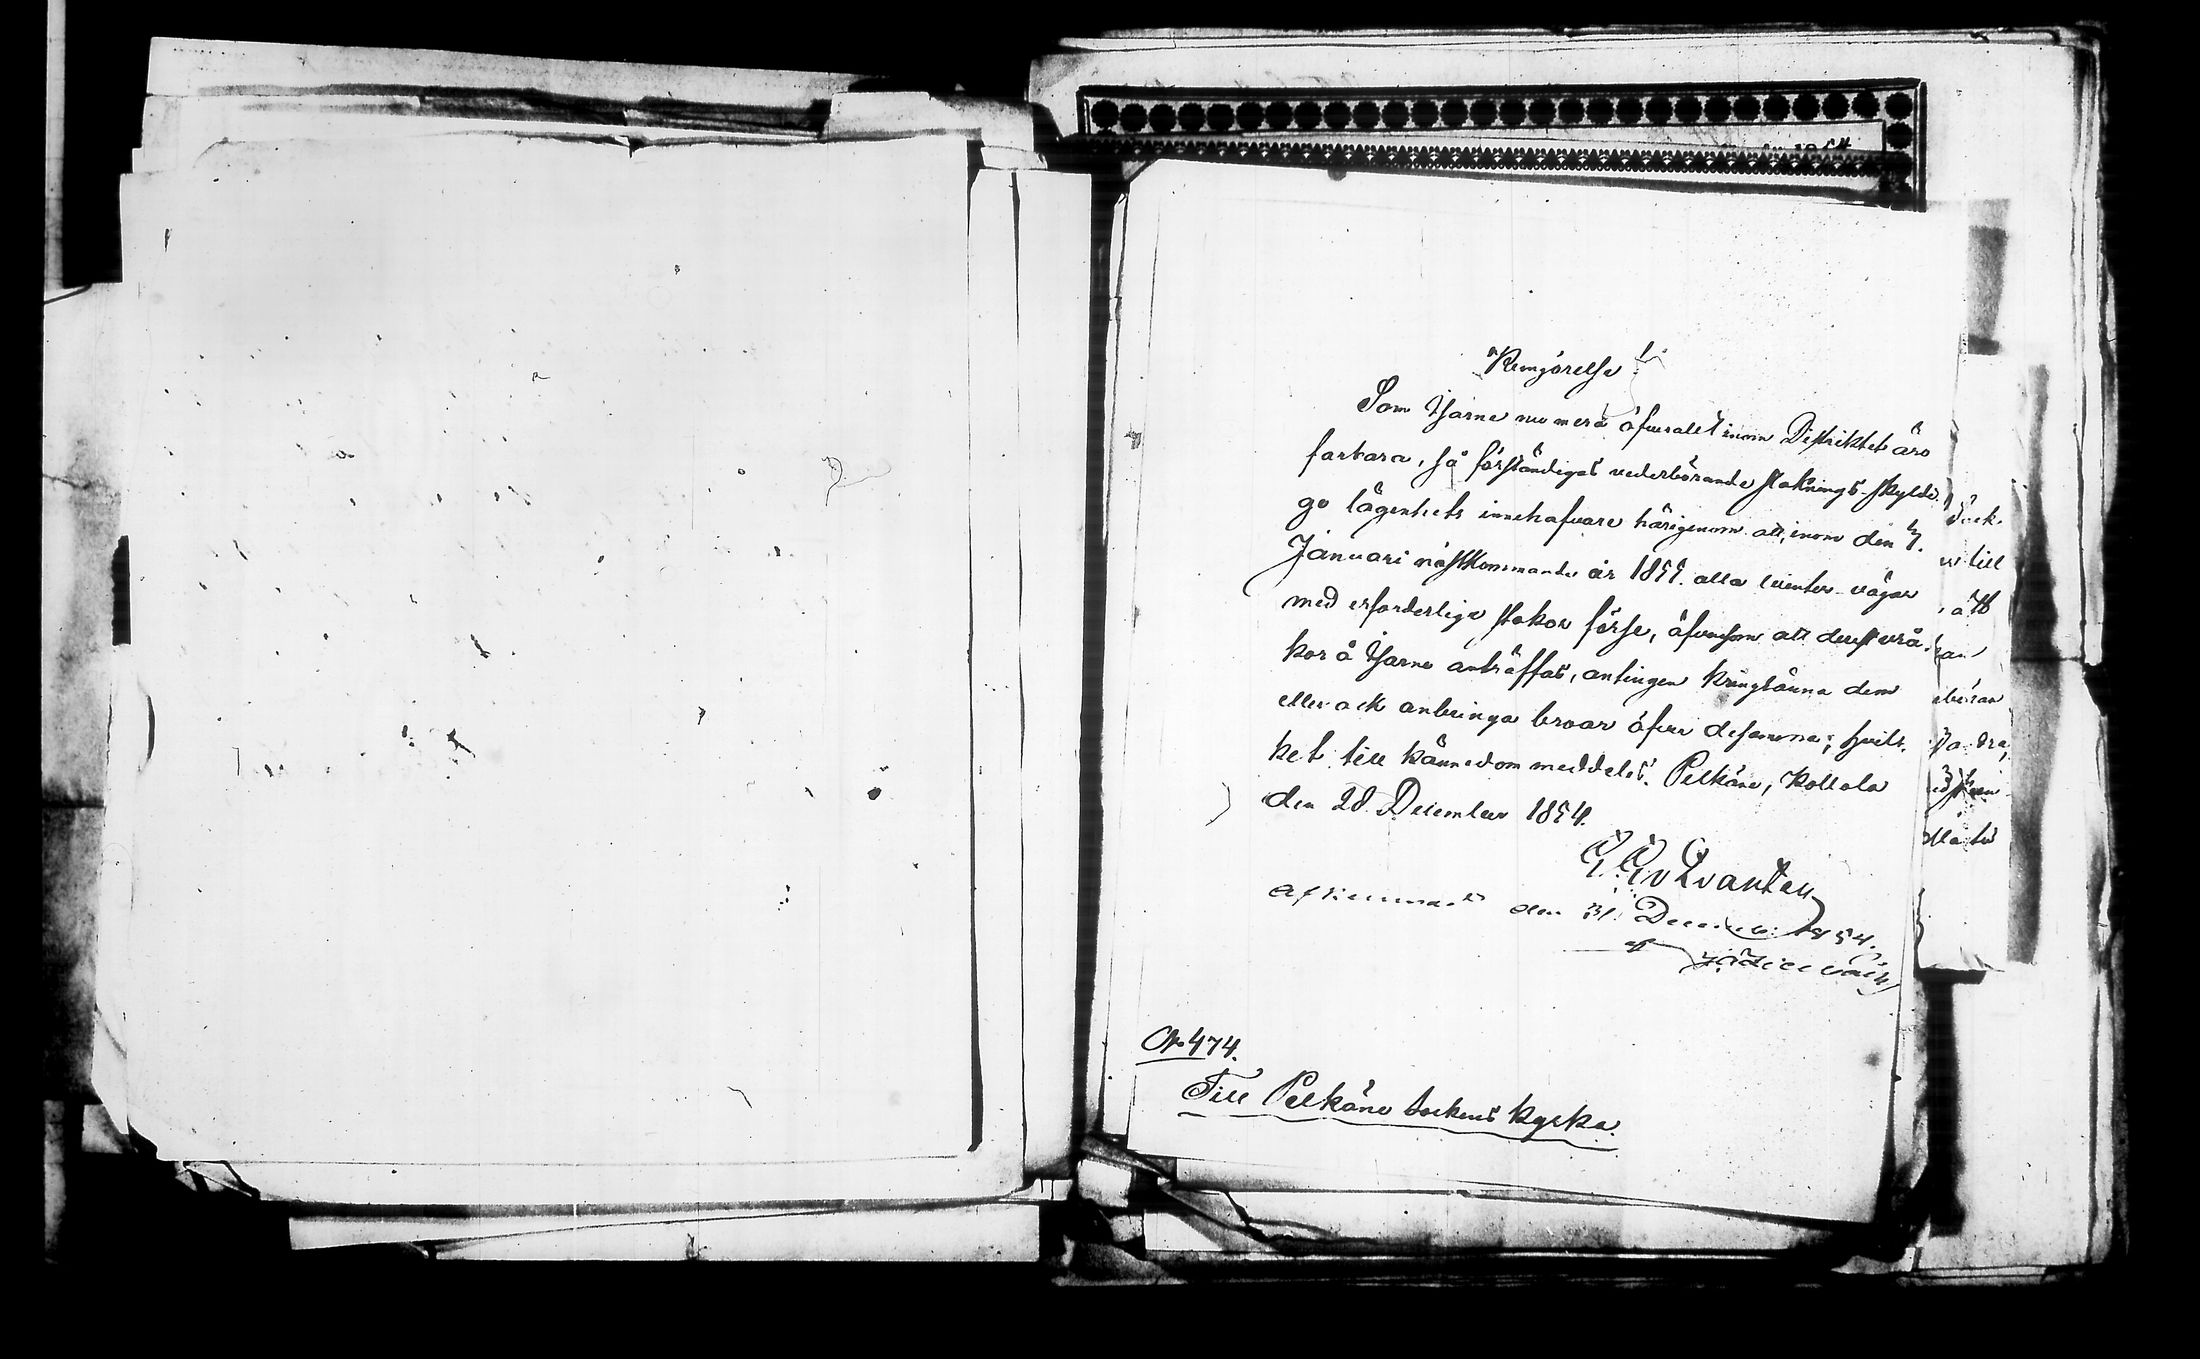 Kungörelse!
Som Isarne nu mera öfverallt inom Distriktet äro
farbara, så förständigas vederbörande stoknings-skyldi-
ge lägenhets innehafvare härigenom att, inom den 7.
Januari nästkommande år 1855. alla vinter vägar
med erforderliga stokor förse, äfvensom att derest vrå-
kor å Isarne anträffas, antingen kringhänna dem
eller ock anbringa broar öfver desamma; hvil-
ket till kännedom meddelas. Pelkäne, Kollola
den 28 December 1854.
G. G. v Qvanten
den 31. Decemb: 1854.
af
No 474.
Till Pelkäne Sockens Kyrka.
Sock-
till
att